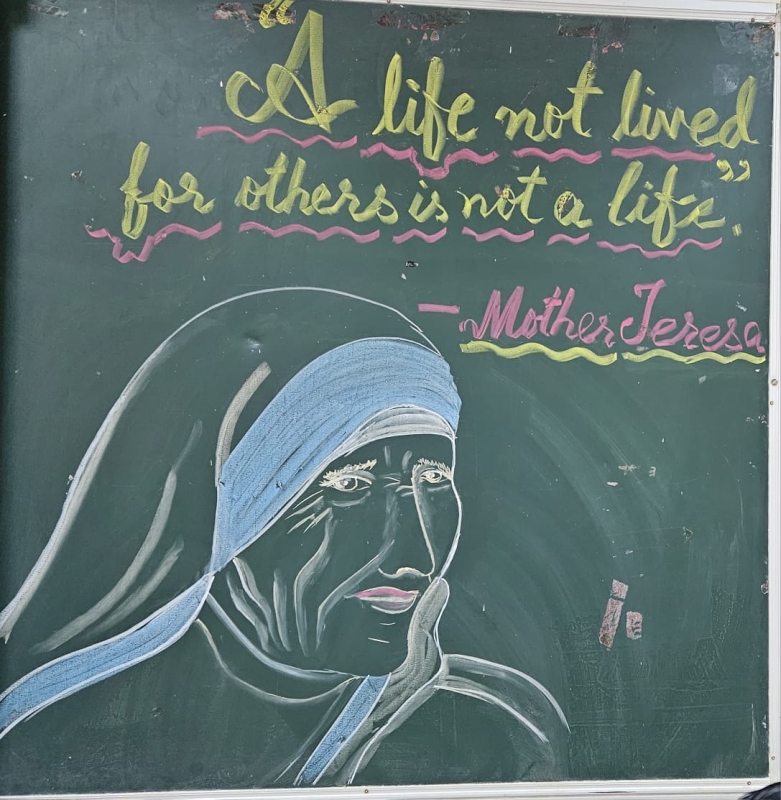 "A life not lived
for others is not a life."
- Mother Teresa